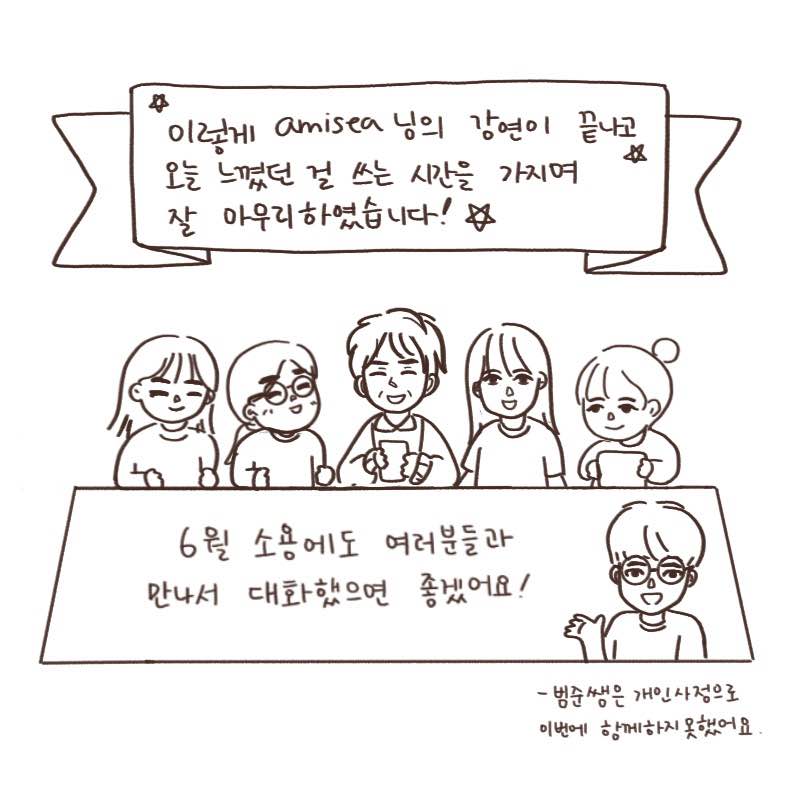 이렇게 amisea 님의 강연이 끝나고
오늘 느꼈던 걸 쓰는 시간을 가지며
잘 마무리하였습니다!
6월 소용에도 여러분들과
만나서 대화했으면 좋겠어요!
- 범준쌤은 개인사정으로
이번에 함께하지 못했어요.